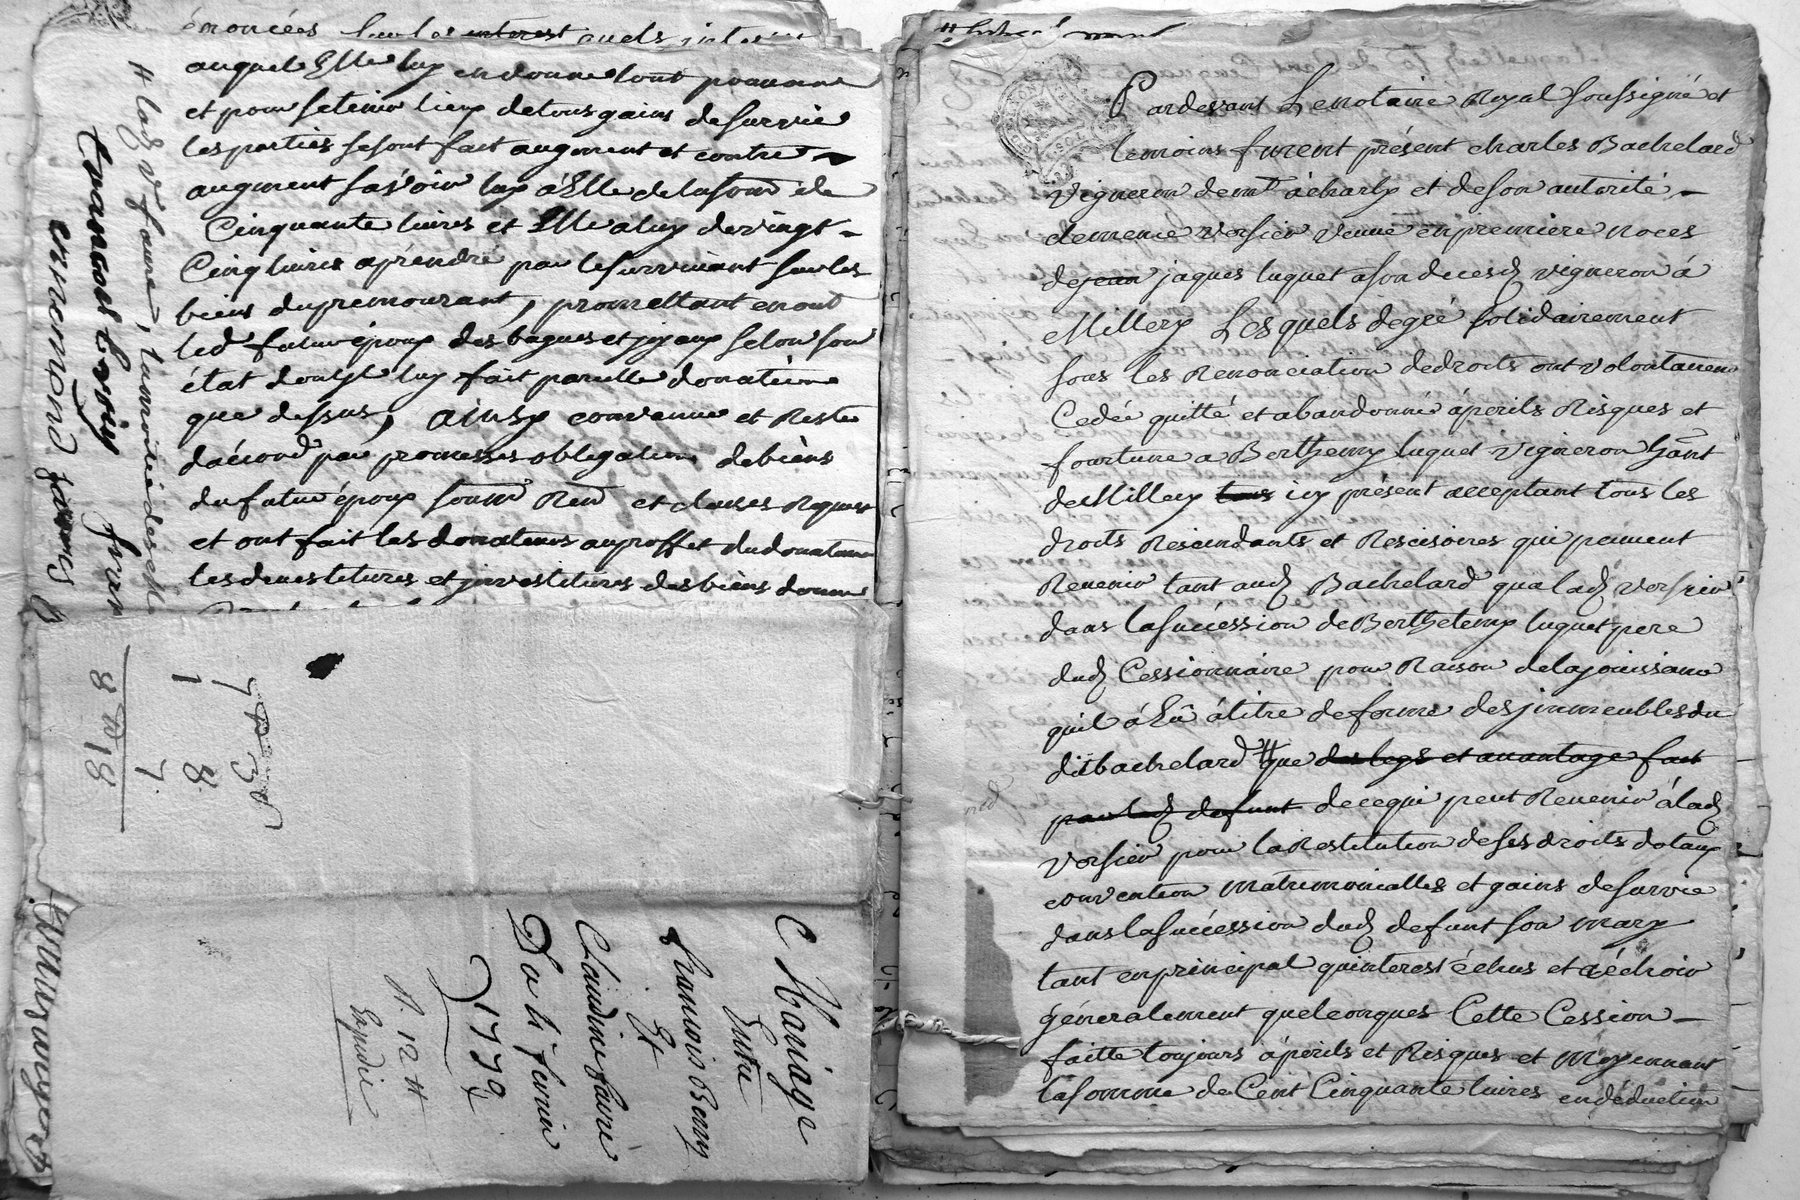 énoncées sur les interest
auquel Elle luy en donne tout pouvoir
et pour se tenir lieu de tous gains de survie
les parties se sont fait augment et contre
augment sçavoir luy à Elle de la som̃e de
Cinquante livres et Elle a luy de vingt
Cinq livres à prendre par le survivant sur les
biens du premourant, promettant en out
led futur époux des bagues et joyaux selon son
état dont Elle luy fait pareille donation
que dessus, ainsy convenu et Reste
d'acord par promesses obligation de biens
du futur époux soum Ren et clauses Requis
et ont fait les donateurs au proffet du donataire
les devestitures et jnvestitures des biens donné
# lad v. faure, la moitié des
7 8 3
1 8
7
8 # 18
Mariage
Entre
francois Berry
Et
Claudine faure
Du 11 fevrier
1779
R. 12 #
Expedié
Pardevant Le notaire Royal soussigné et
temoins furent présent charles Bachelard
vigneron demt à charly et de son autorité
clemence Versier veuve en premiere noces
de jean jaques luquet a son deces vigneron á
Millery Lesquels de gré solidairement
sous les Renonciation de droits ont volontairem
Cedée quitté et abandonné á perils Risques et
fourtune a Berthemy luquet vigneron hãnt
de Millery tous icy présent acceptant tous les
droits Rescindants et Rescisoires qui peuvent
Revenir tant aud Bachelard qua lad Versier
dans la succession de Berthelemy luquet pere
dud Cessionnaire pour Raison de la jouissance
quil á Eû á titre de ferme des jmmeubles du
dit bachelard # que des legs et avantage fait
par led defunt de ce qui peut Revenir á lad
Versier pour la Restitution de ses droits dotaux
convention matrimonialles et gains de survie
dans la succession dud defunt son mary
tant en principal qu'interest échus et a échoir
généralement quelconques Cette Cession
faitte toujours á perils et Risques et Moyennant
la somme de Cent Cinquante livres en déduction